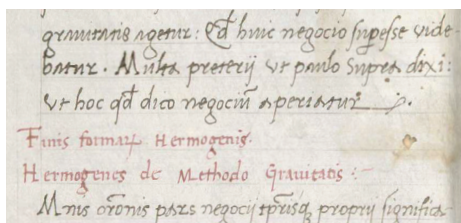 grauitatis agetur: Qd̄ huic negocio sup̄esse vide-
batur. Multa preterii vt paulo supra dixi:
vt hoc qd̄ dico negociū aperiatur.
Finis formaꝝ Hermogenis.
Hermogenes de Methodo Grauitatis:
Mnis orōnis pars negocij tp̄risq̄ proprij significa-